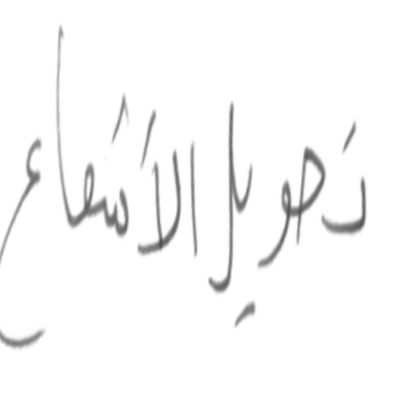 تحويل الأشعاع